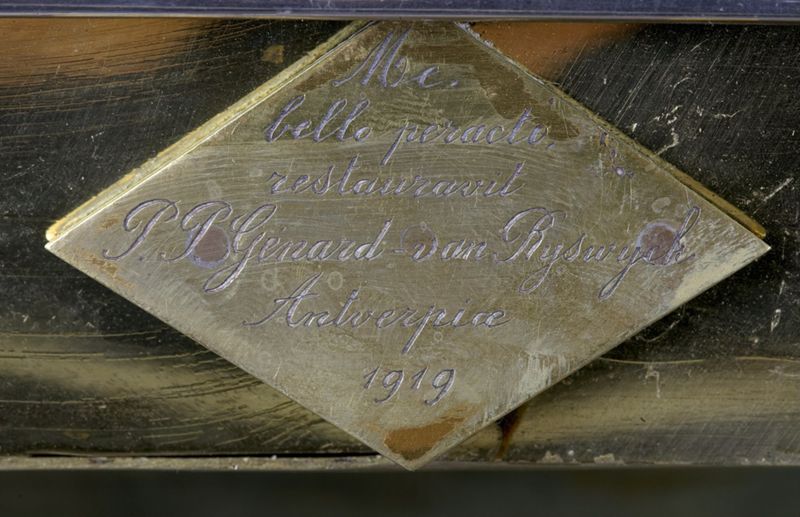 Me,
bello peracto,
restauravit
P. P. Génard-van Ryswyck
Antverpiæ
1919